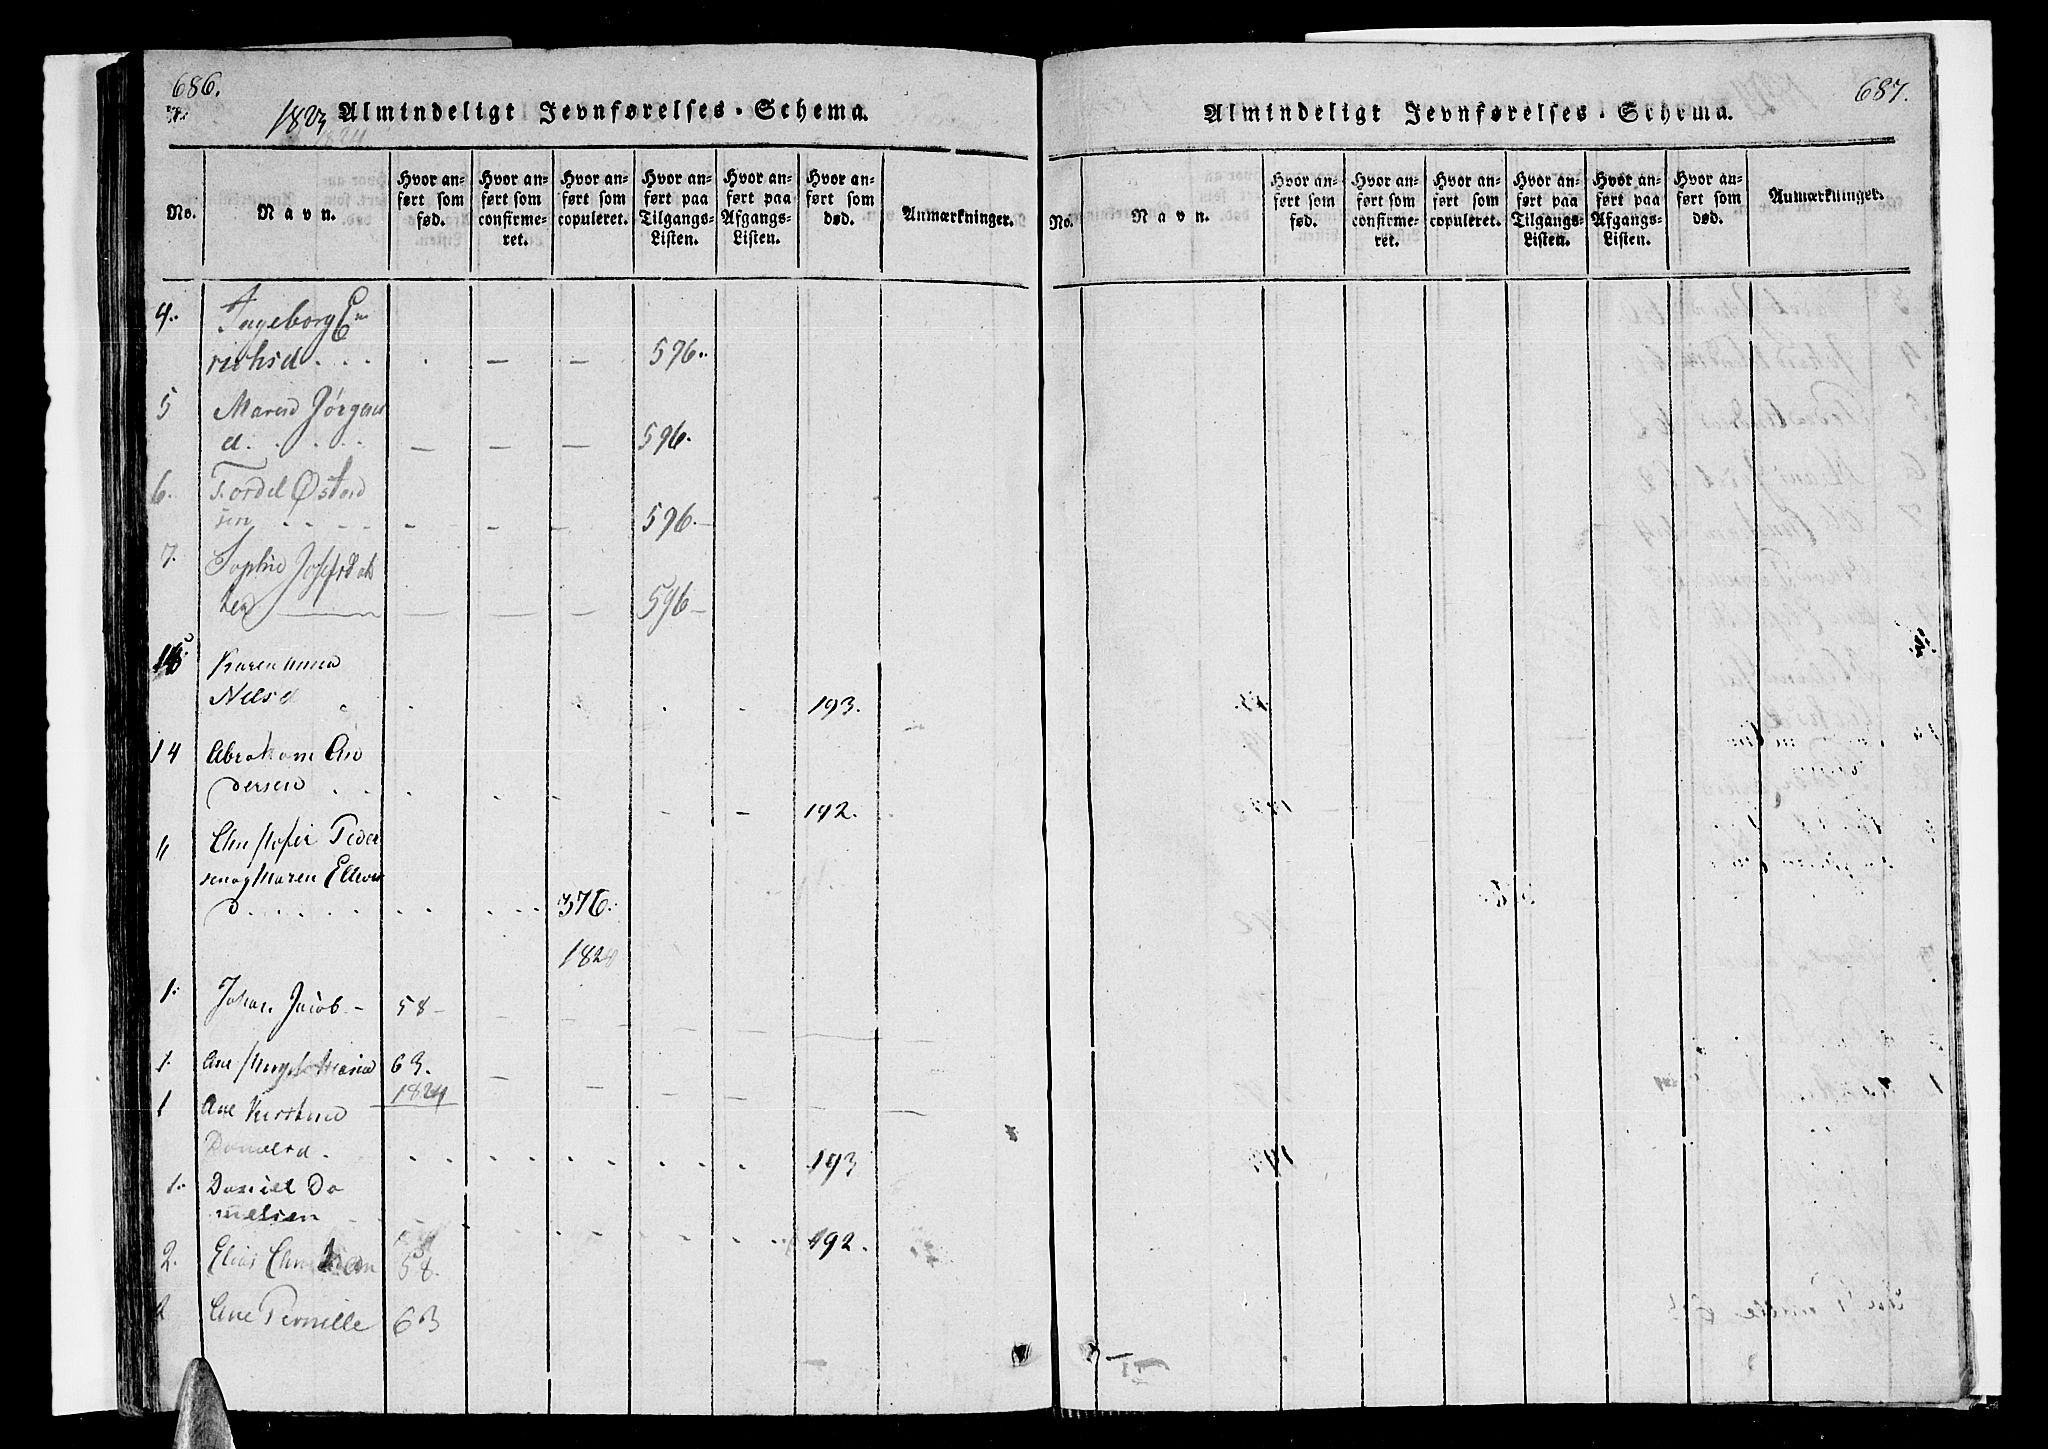 686.
1823 Almindeligt Jevnførelses-Schema.
No.
Navn.
Hvor an-
ført som
fød.
Hvor an-
ført som
confirme-
ret.
Hvor an-
ført som
copuleret.
Hvor an-
ført paa
Tilgangs-
Listen.
Hvor an-
ført paa
Afgangs-
Listen.
Hvor an-
ført som
død.
Anmærkninger.
4. Ingeborg E
richsd . . . . — — 596.
5 Maren Jørgens
d. . . . . — — — 596.
6. Tordel
sen . . . . - - - 596.
7. Sophie Josefsdat
ter — — — 596
Karen Anna
Nielsd 193.
14 Abraham An
dersen . . . 192.
" Christofer Peder
sen og Maren Ellevs
d . . . . . 376.
1824
1. Johan Jacob - 58 -
1. Ane Margt Maria 63.
1824
1 Ane Kirstine
Danielsd. 193
1. Daniel Da
nielsen 192.
2. Elias Christian 58.
2 Ane Pernille 63
687.
Almindeligt Jevnførelses-Schema.
No.
Navn.
Hvor an-
ført som
fød.
Hvor an-
ført som
confirme-
ret.
Hvor an-
ført som
copuleret.
Hvor an-
ført paa
Tilgangs-
Listen.
Hvor an-
ført paa
Afgangs-
Listen.
Hvor an-
ført som
død.
Anmærkninger.